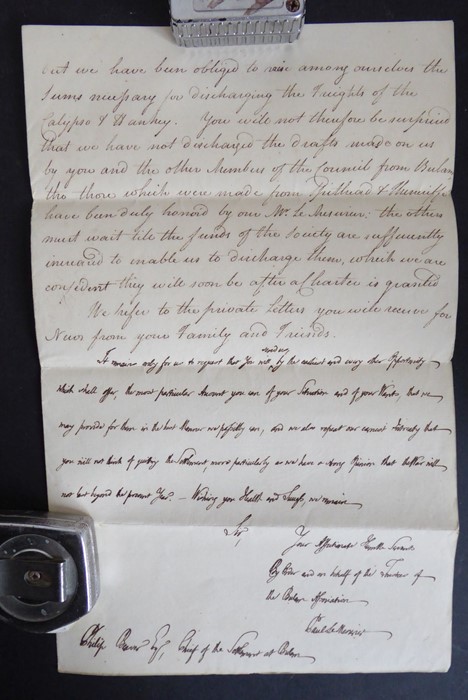 but we have been obliged to raise among ourselves the
Sums necessary for discharging the Freights of the
Calypso & Hankey. You will not therefore be surprised
that we have not discharged the drafts made on us
by you and the other Members of the Council from Bulam
tho those which were made from Spithead &
have been duly honor'd by our Mr. Le Mesurier: the others
must wait till the funds of the Society are sufficiently
increased to enable us to discharge them, which we are
confident they will soon be after a Charter is granted
We refer to the private Letters you will receive for
News from your Family and Friends.
It remains only for us to request that You will send us, by the earliest and every other Opportunity
which shall offer, the most particular Account you can of your Situation and of your Wants, that we
may provide for them in the best Manner we possibly can, and we also repeat our earnest Intreaty that
you will not think of quitting the Settlement more particularly as we have a strong Opinion that will
not last beyond the present Year. — Wishing you Health and Strength, we remain
Sir,
Your Affectionate Humble Servants
By Order and on behalf of the Trustees of
the Bulam Association
Paul Le Mesurier
Philip Beaver Esq, Chief of the Settlement at Bulam